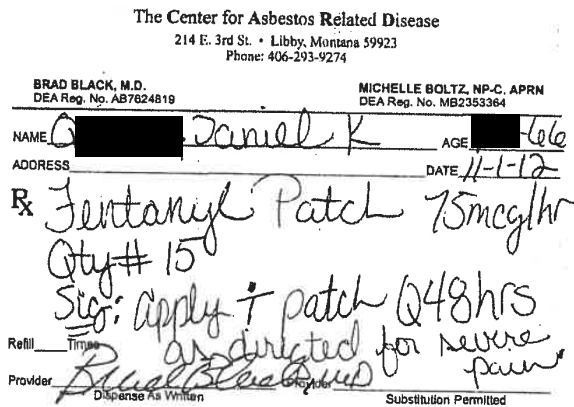 The Center for Asbestos Related Disease
214 E. 3rd St. • Libby, Montana 59923
Phone: 406-293-9274
BRAD BLACK, M.D. MICHELLE BOLTZ, NP-C, APRN
DEA Reg. No. AB7624819 DEA Reg. No. MB2353364
NAME Q Daniel K AGE -66
ADDRESS DATE 11-1-12
Rx Fentanyl Patch 75mcg/hr
Qty# 15
Sig: apply † patch Q48hrs
Refill Times as directed for severe
pain
Provider Brad Black MD Provider
Dispense As Written Substitution Permitted